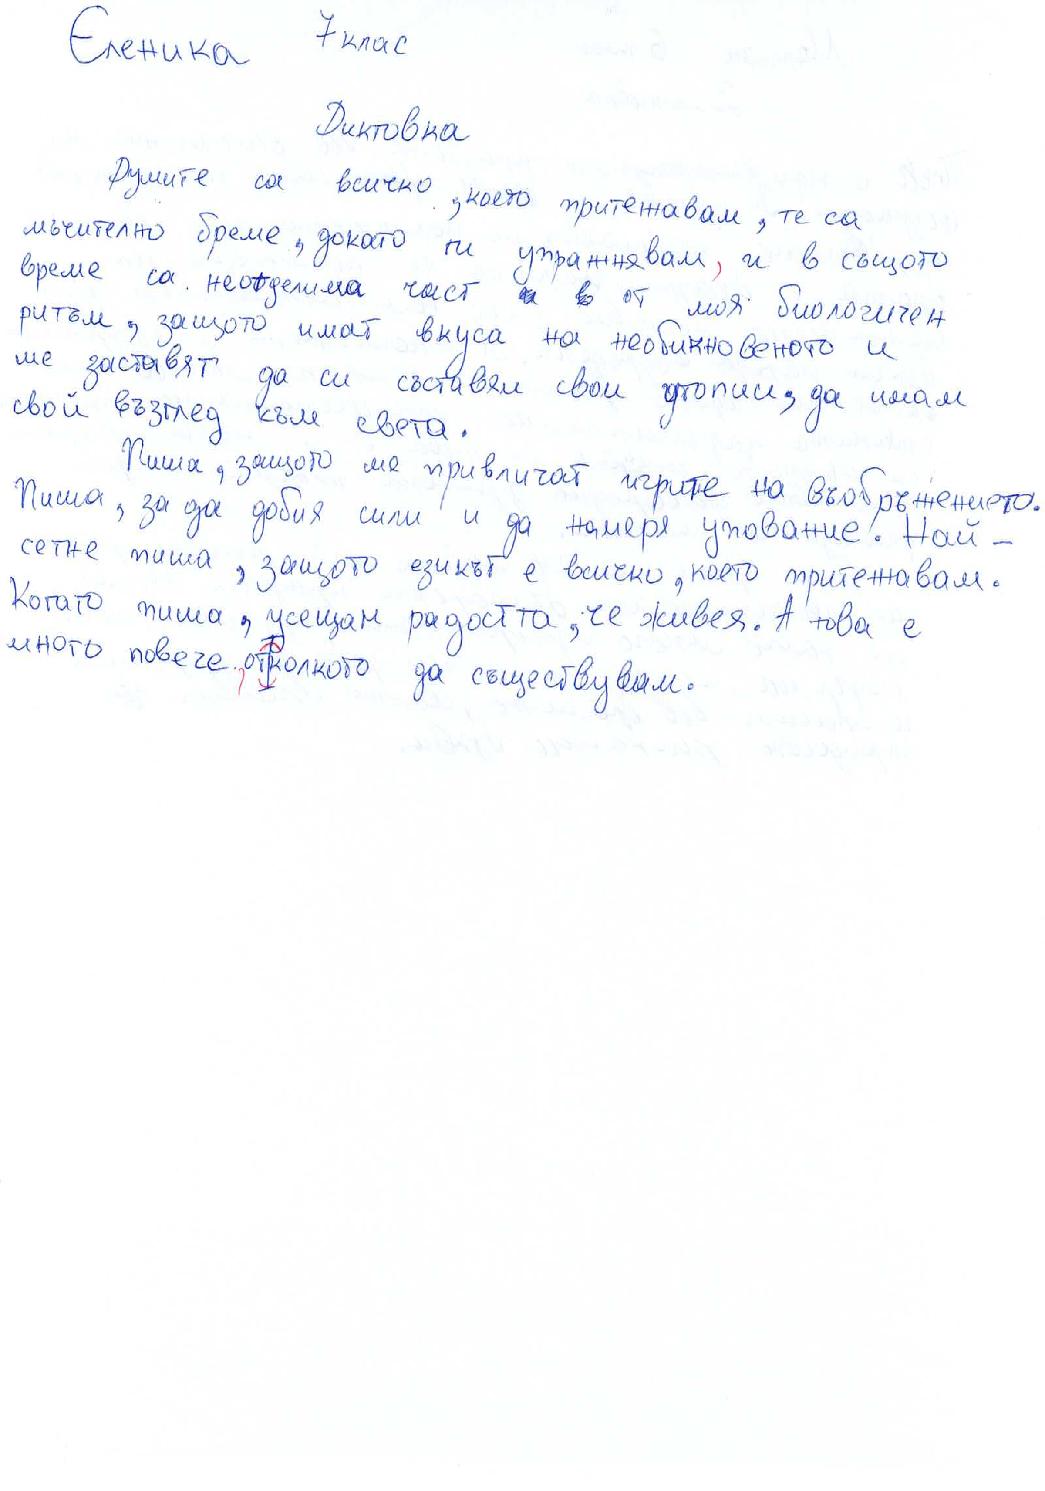 Еленика 7 клас
Диктовка
Думите са всичко, което притежавам, те са
мъчително бреме, докато ги упражнявам, и в същото
време са неотделима част от моя биологичен
ритъм, защото имат вкуса на необикновеното и
ме заставят да си съставям свои утопии, да имам
свой възглед към света.
Пиша, защото ме привличат игрите на въобръжението.
Пиша, за да добия сили и да намеря упование. Най-
сетне пиша, защото езикът е всичко, което притежавам.
Когато пиша, усещам радостта, че живея. А това е
много повече отколкото да съществувам.